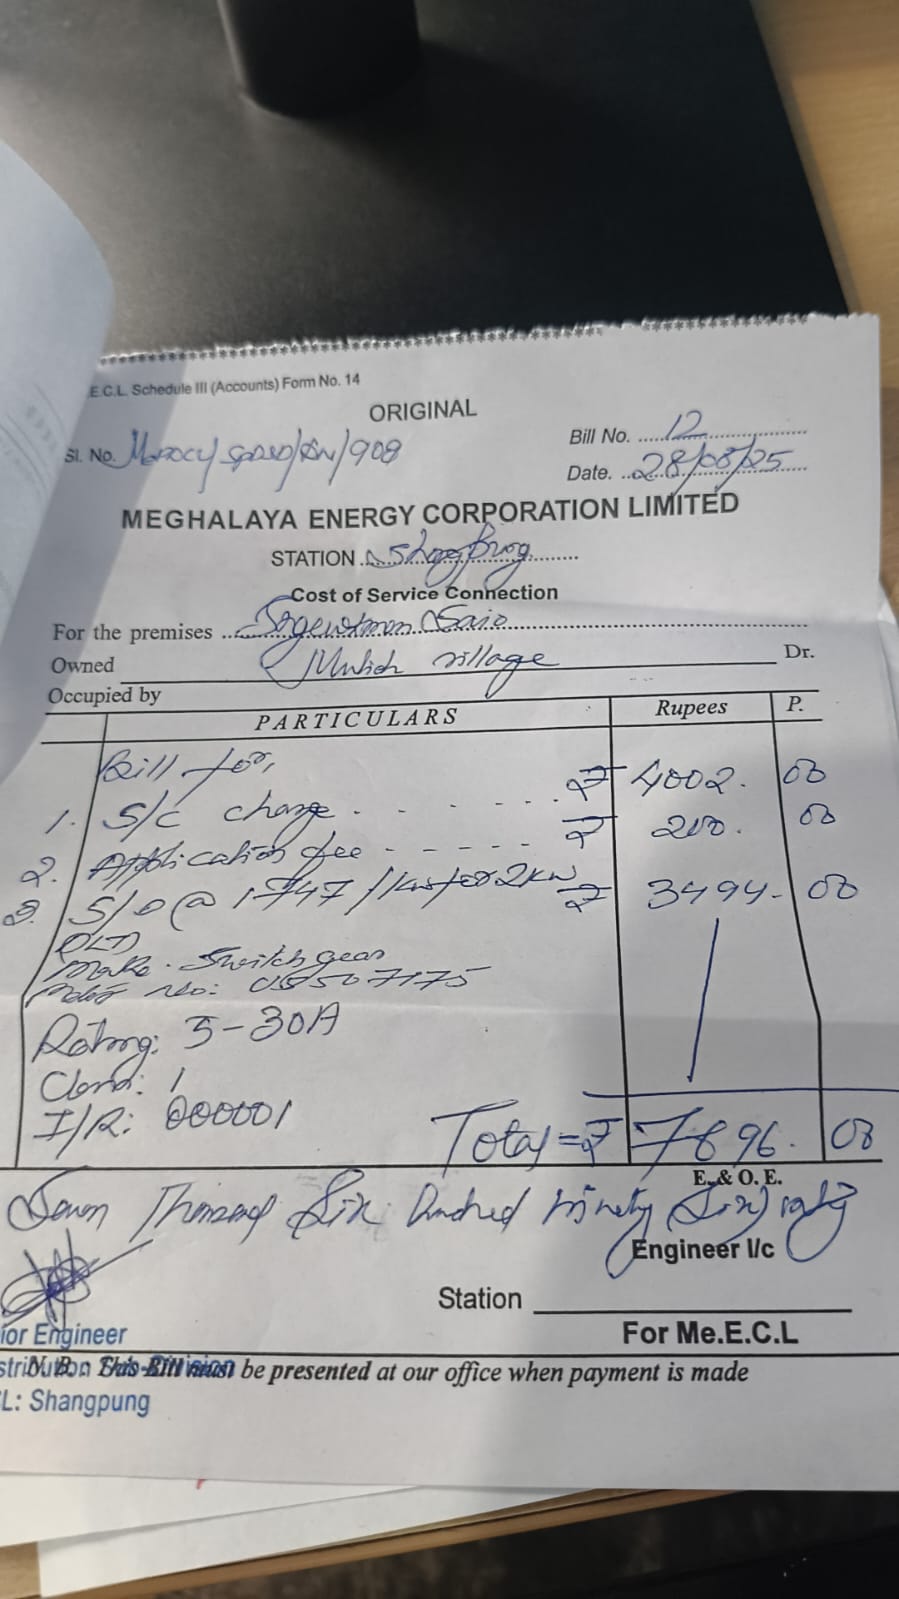 .E.C.L. Schedule III (Accounts) Form No. 14
ORIGINAL
Sl. No. /908
Bill No. 12
Date. 28/08/25
MEGHALAYA ENERGY CORPORATION LIMITED
STATION
Cost of Service Connection
For the premises
Owned village Dr.
Occupied by
PARTICULARS Rupees P.
Bill for,
1. S/c charge ₹ 4002. 00
2. Application fee ₹ 00
3. S/D @ 1747/kw for 2kw ₹ 3494. 00
Make. Switchgear
No: 08507175
Rating: 5-30A
1
I/R: 000001
Total = ₹ 7696. 00
E. & O. E.
Seven Thousand Six Hundred Ninety Six) only
Engineer I/c
Station
For Me.E.C.L
ior Engineer
N. B. : This Bill must be presented at our office when payment is made
L: Shangpung